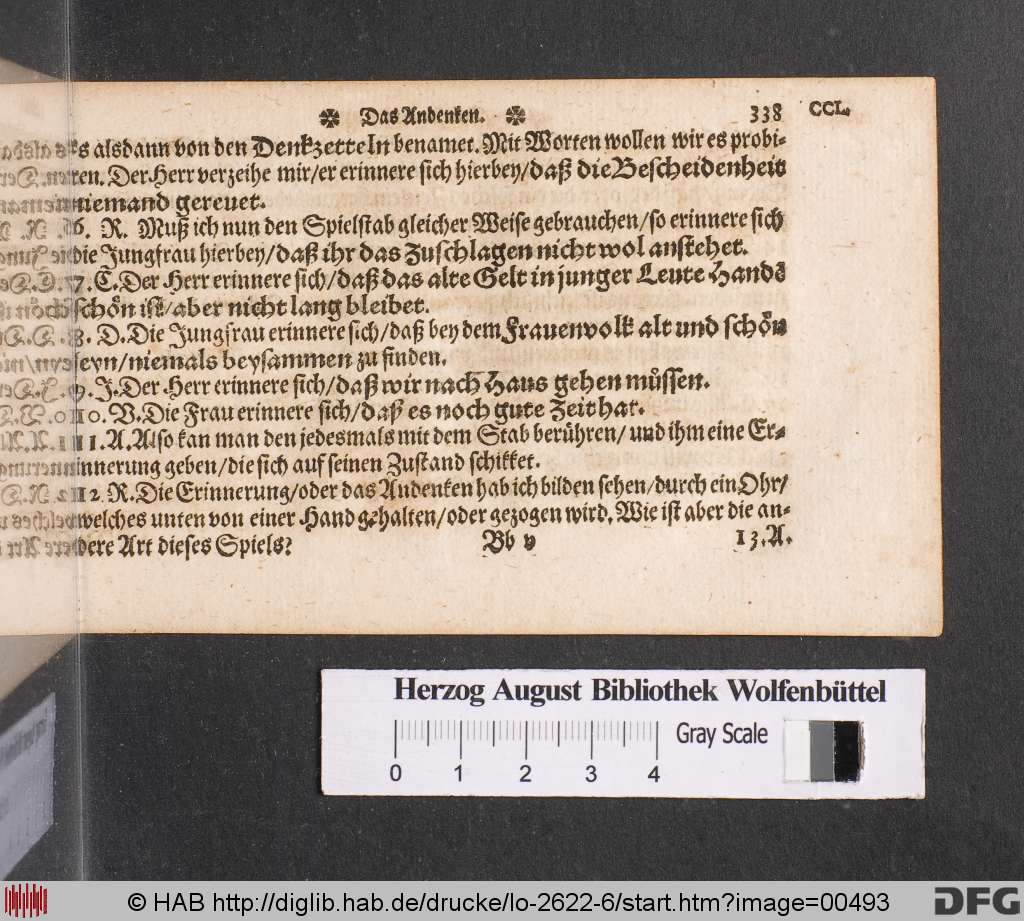 ✼ Das Andenken. ✼ 338 CCL.
s alsdann von den Denkzetteln benamet. Mit Worten wollen wir es probi-
ren. Der Herr verzeihe mir/er erinnere sich hierbey/daß die Bescheidenheit
niemand gereuet.
6. R. Muß ich nun den Spielstab gleicher Weise gebrauchen/so erinnere sich
die Jungfrau hierbey/daß ihr das Zuschlagen nicht wol anstehet.
7. C. Der Herr erinnere sich/daß das alte Gelt in junger Leute Hande
schön ist/aber nicht lang bleibet.
8. D. Die Jungfrau erinnere sich/daß bey dem Frauenvolk alt und schön
seyn/niemals beysammen zu finden.
9. J. Der Herr erinnere sich/daß wir nach Haus gehen müssen.
10. V. Die Frau erinnere sich/daß es noch gute Zeit hat.
11. A. Also kan man den jedesmals mit dem Stab berühren/ und ihm eine Er-
innerung geben/die sich auf seinen Zustand schikket.
12 R. Die Erinnerung/oder das Andenken hab ich bilden sehen/durch ein Ohr/
welches unten von einer Hand gehalten/oder gezogen wird. Wie ist aber die an-
dere Art dieses Spiels? Bb v 13. A.
Herzog August Bibliothek Wolfenbüttel
0 1 2 3 4 Gray Scale
© HAB http://diglib.hab.de/drucke/lo-2622-6/start.htm?image=00493 DFG